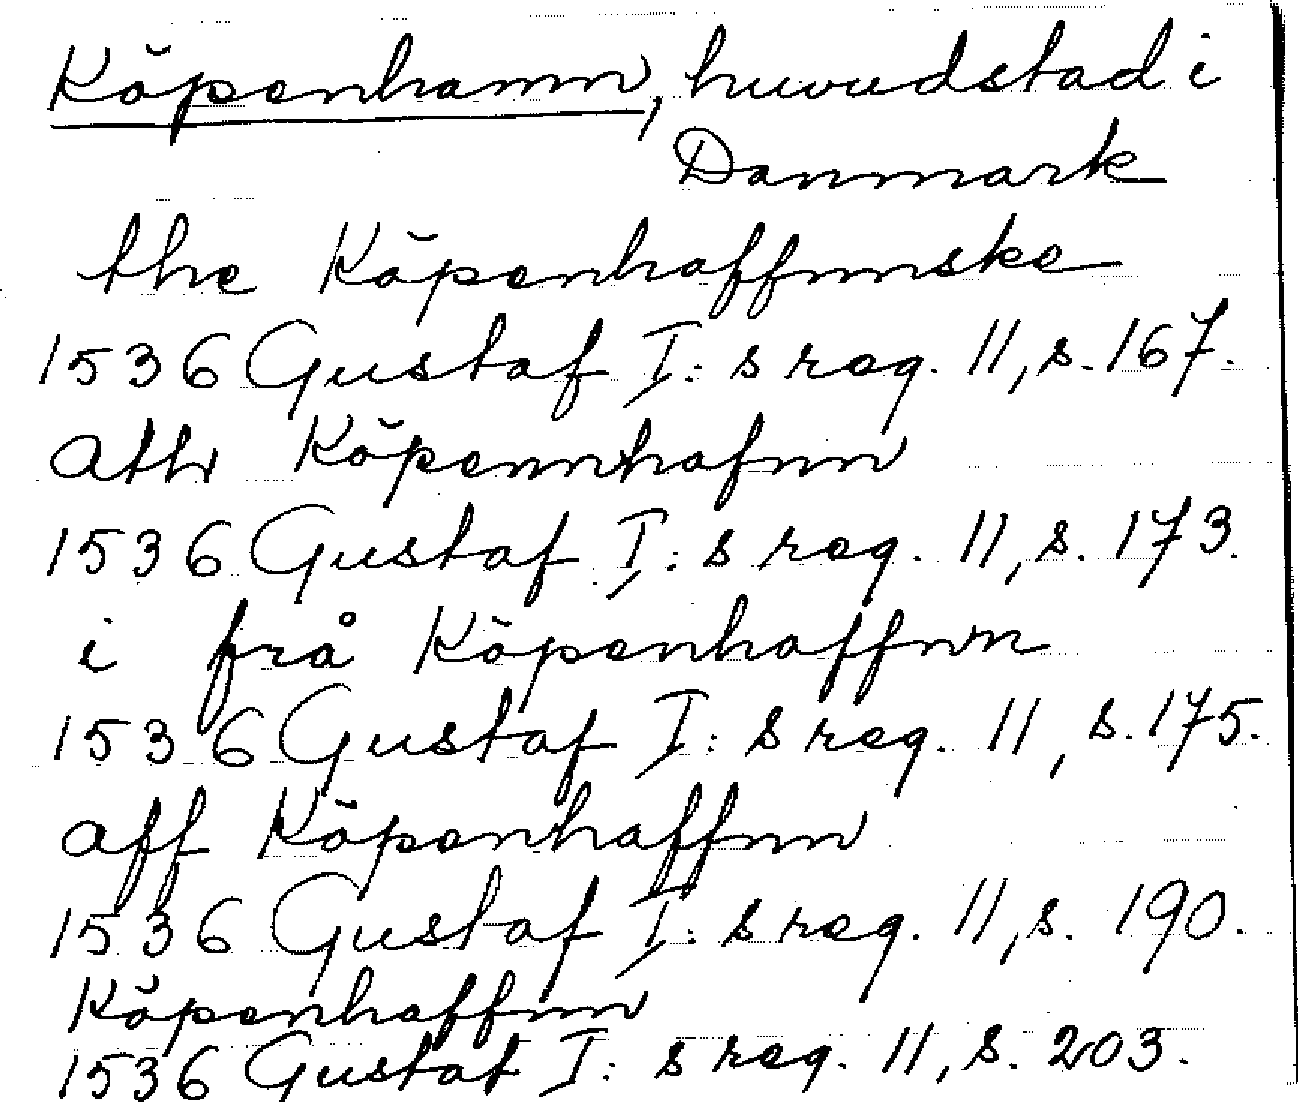 Köpenhamn, huvudstad i
Danmark
the Köpenhaffnnske
1536 Gustaf I: s reg. 11, s. 167.
ath Köpennhafnn
1536 Gustaf I: s reg. 11, s. 173.
i frå Köpenhaffnn
1536 Gustaf I: s reg. 11, s. 175.
aff Köpenhaffnn
1536 Gustaf I: s reg. 11, s. 190.
Köpenhaffnn
1536 Gustaf I: s reg. 11, s. 203.